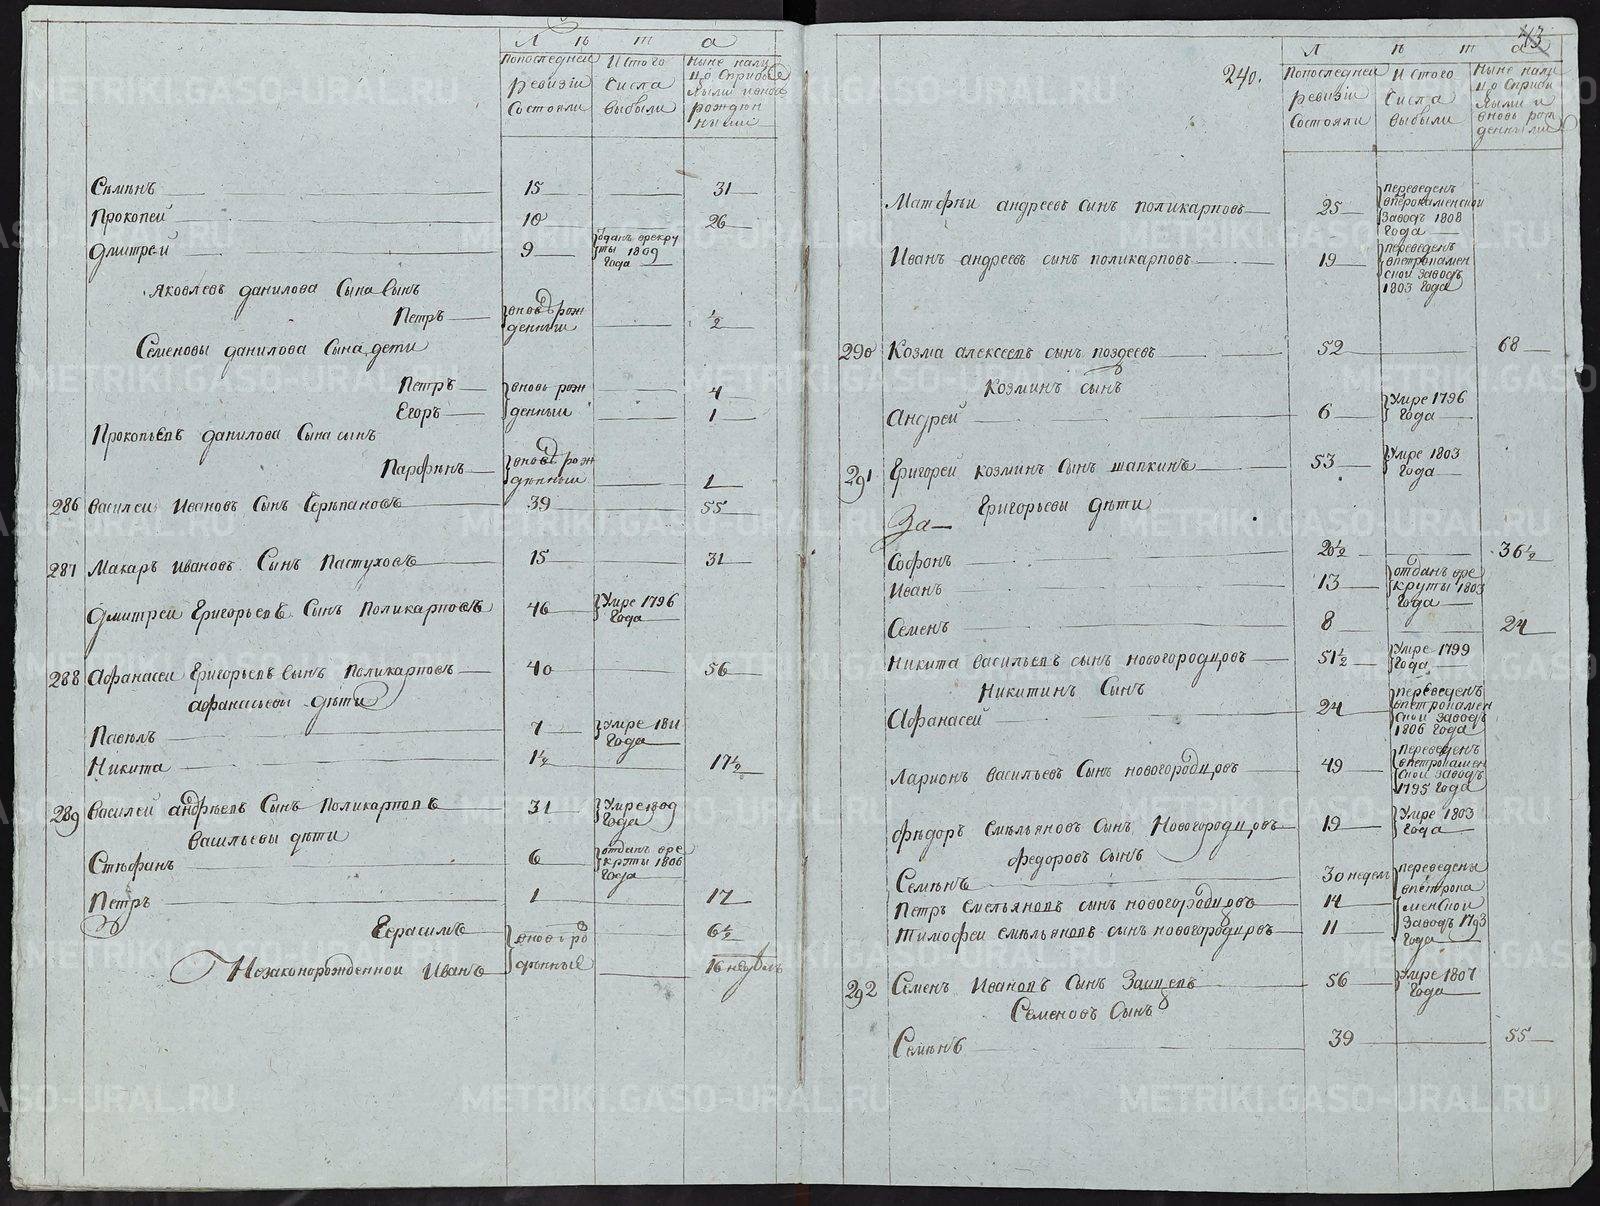 Л ѣ т а
Попоследней ревизіи Состояли
И Стого числа выбыли
Ныне налицо Сприбылыми ивновь рожденными
Семенъ 15 31
Прокопей 10 26
Дмитрей 9 отданъ врекруты 1809 года
Яковлевъ данилова Сына Сынъ
Петръ вновь рожденный 1/2
Семеновы данилова Сына дети
Петръ вновь рож 4
Егоръ денныи 1
Прокопьевъ данилова Сына сынъ
Парфенъ вновь рожденный 1
286 Василеи Ивановъ Сынъ Черепановъ 39 55
287 Макаръ Ивановъ Сынъ Пастуховъ 15 31
Дмитреи Григорьевъ Сынъ Поликарповъ 46 Умре 1796 года
288 Афанасеи Григорьевъ Сынъ Поликарповъ 40 56
афанасьевы дети
Павелъ 7 Умре 1811 года
Никита 1 1/2 17 1/2
289 Василей андреевъ Сынъ Поликарповъ 31 Умре 1809 года
Васильевы дети
Стефанъ 6 отданъ врекруты 1806 года
Петръ 1 17
Герасимъ вновь ро 6 1/2
Незаконорожденной Иванъ жденные 16 недель
43
240.
Л ѣ т а
Попоследней ревизіи Состояли
И Стого числа выбыли
Ныне налицо Сприбылыми и вновь рожденными
Матфеи андреевъ сынъ поликарповъ 25 переведенъ впетрокаменской заводъ 1808 года
Иванъ андреевъ сынъ поликарповъ 19 переведенъ впетрокаменской заводъ 1803 года
290 Козма алексеевъ сынъ поздеевъ 52 68
козминъ сынъ
Андрей 6 Умре 1796 года
291 Григорей козминъ Сынъ шапкинъ 53 Умре 1803 года
Григорьевы дети
За
Софонъ 20 1/2 36 1/2
Иванъ 13 отданъ врекруты 1803 года
Семенъ 8 24
Никита васильевъ сынъ новогородцовъ 51 1/2 Умре 1799 года
Никитинъ Сынъ
Афанасей 24 переведенъ впетрокаменской заводъ 1806 года
Ларионъ васильевъ Сынъ новогородцовъ 49 переведенъ впетрокаменской заводъ 1795 года
Федоръ емельяновъ Сынъ Новогородцовъ 19 Умре 1803 года
Федоровъ Сынъ
Семенъ 30 недель переведены
Петръ емельяновъ сынъ новогородцовъ 14 впетрокаменской
Тимофеи емельяновъ сынъ новогородцовъ 11 заводъ 1793 года
292 Семенъ Ивановъ Сынъ Заицевъ 56 Умре 1807 года
Семеновъ Сынъ
Семенъ 39 55